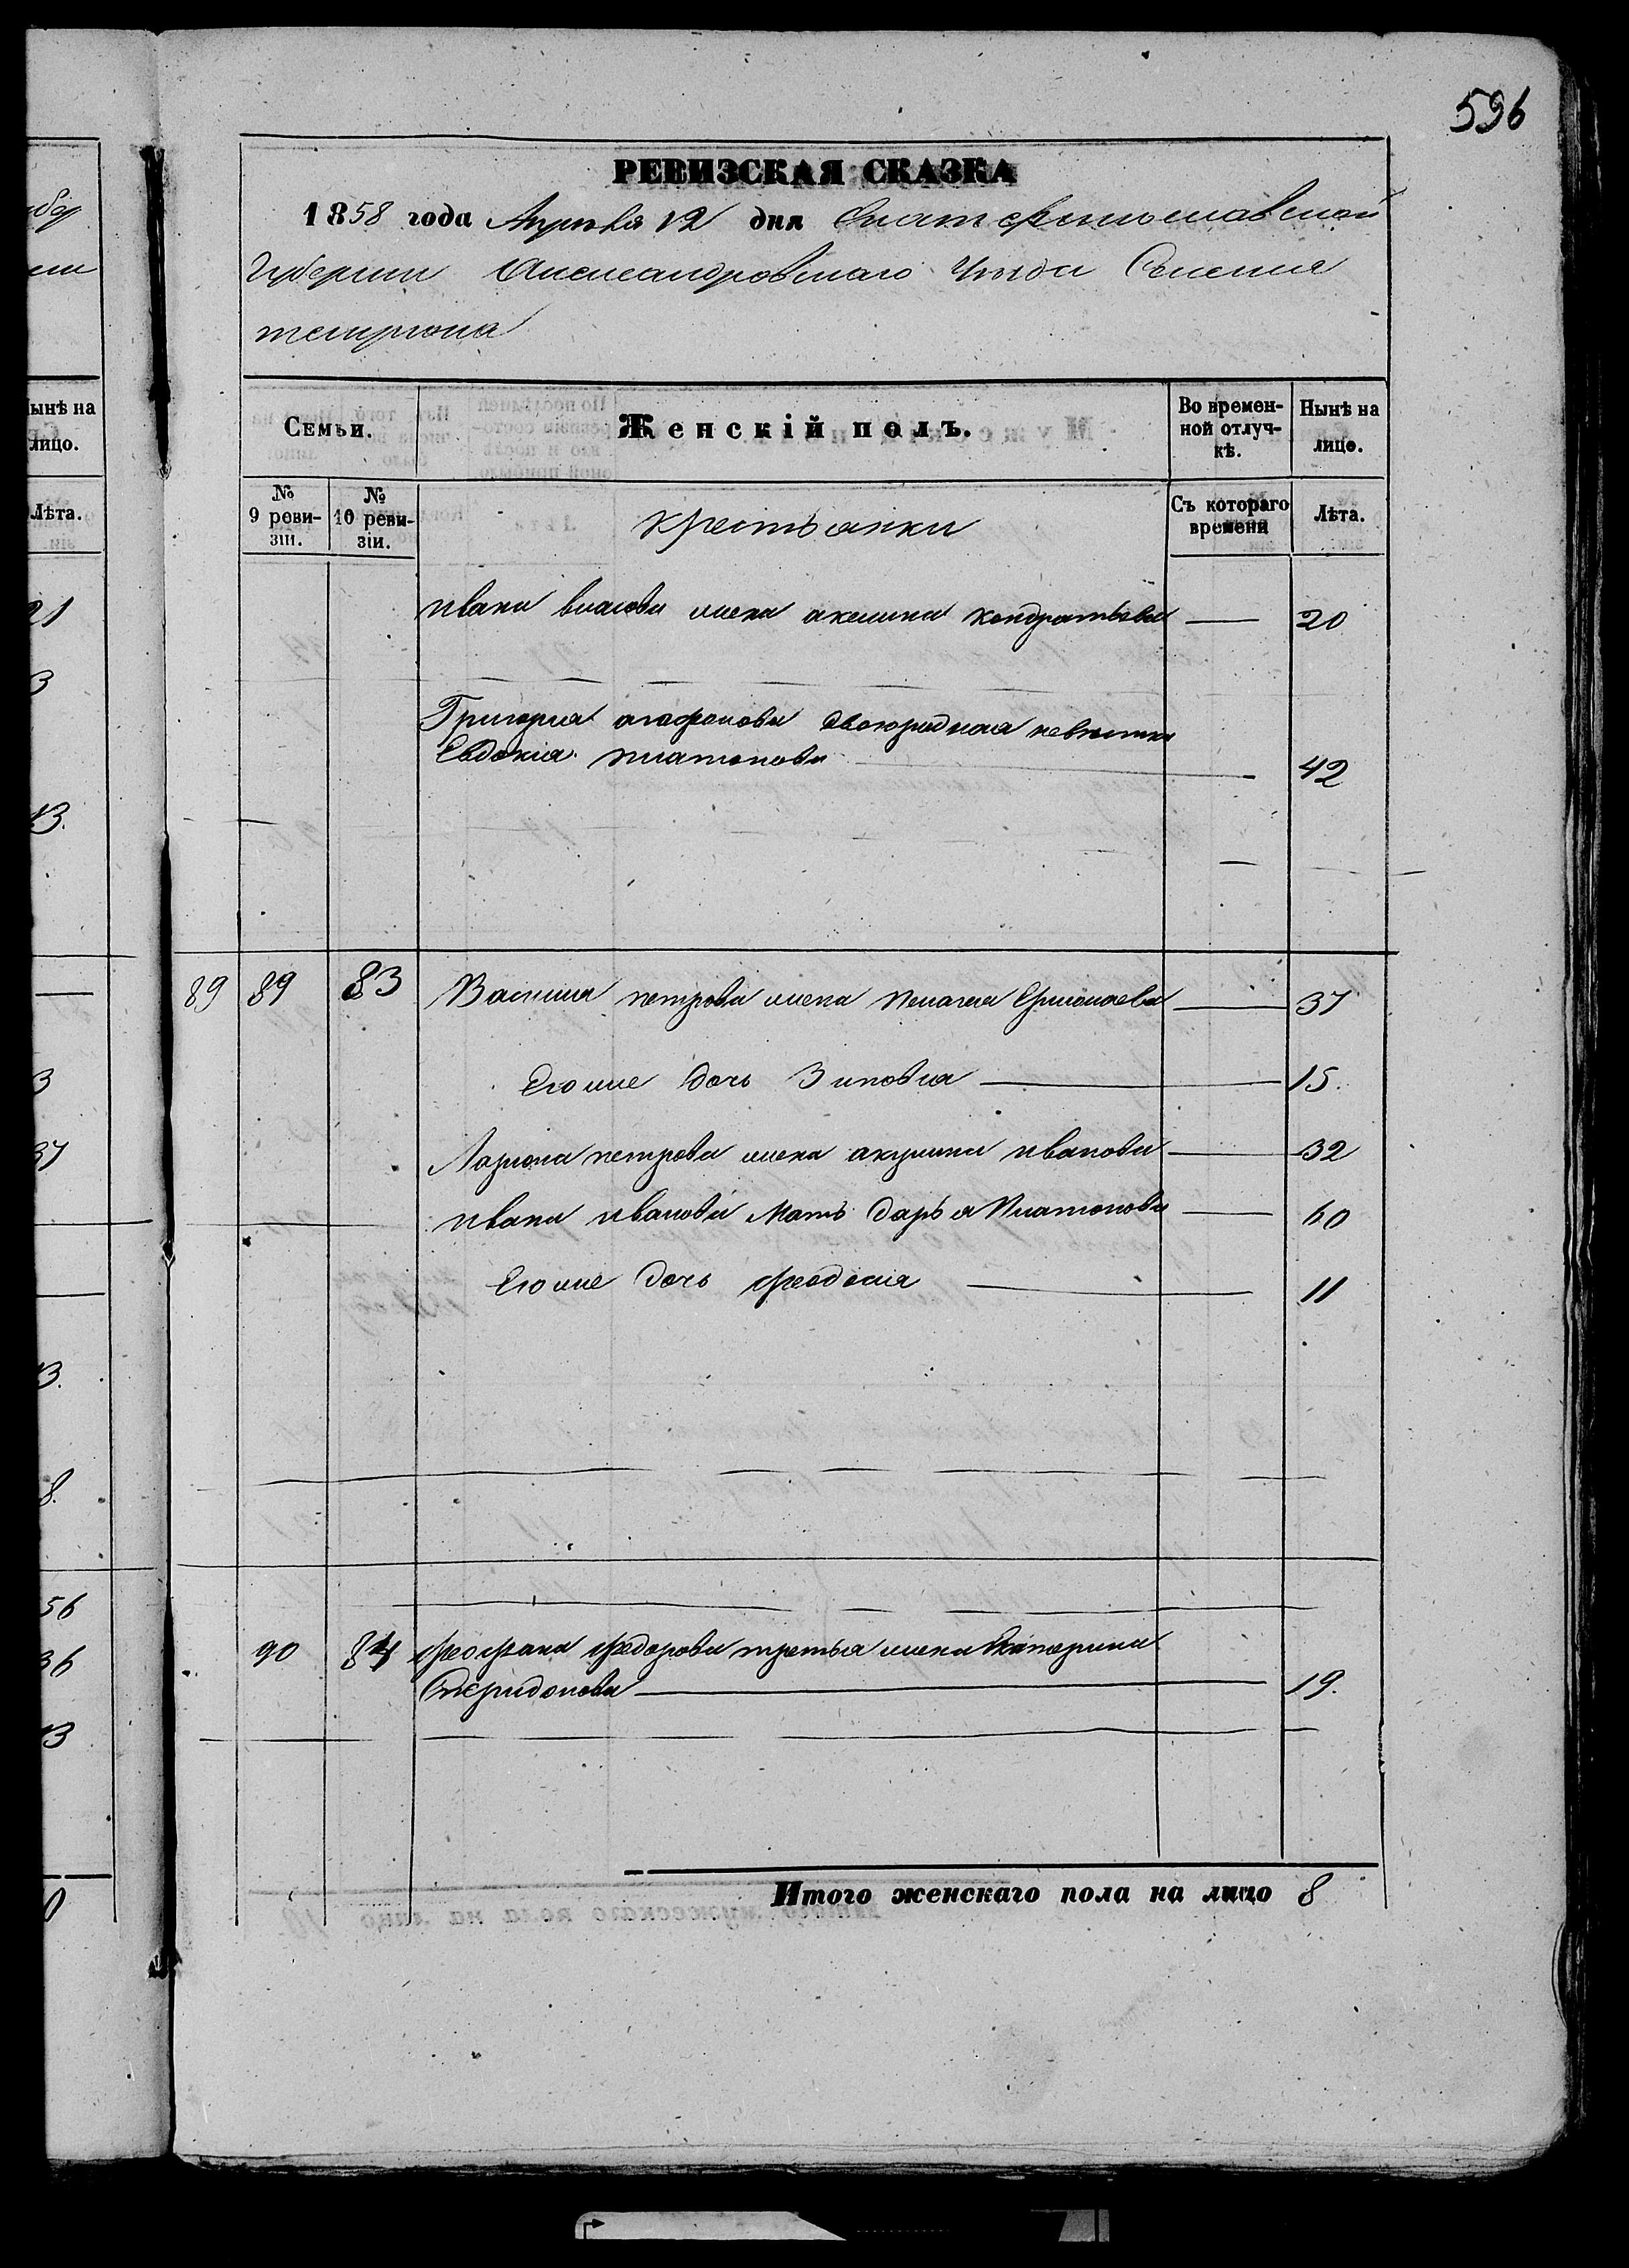 596
РЕВИЗСКАЯ СКАЗКА
1858 года Апреля 12 дня Екатеринославской
Губернии Александровскаго Уѣзда Селения
темрюка
ынѣ на
лицо.
Лѣта.
21
3
13.
3
37
13.
8.
56
36
13
0
Семьи.
Женскій полъ.
Во времен-
ной отлуч-
кѣ.
Нынѣ на
лице.
№
9 реви-
зіи.
№
10 реви-
зіи.
крестьянки
Съ котораго
времени
Лѣта.
ивана власова жена акелина кондратьева — 20
Григорія агафонова двоюродная невѣстка
Евдокия платонова — 42
89 89 83 Василия петрова жена пелагея Ермолаева — 37
Его же дочь Зиновия — 15.
Лариона петрова жена акулина иванова — 32
ивана иванова мать дарья Платонова — 60
Его же дочь феодосия — 11
90 84 феофана федорова третья жена Екатерина
Спиридонова — 19.
Итого женскаго пола на лицо 8